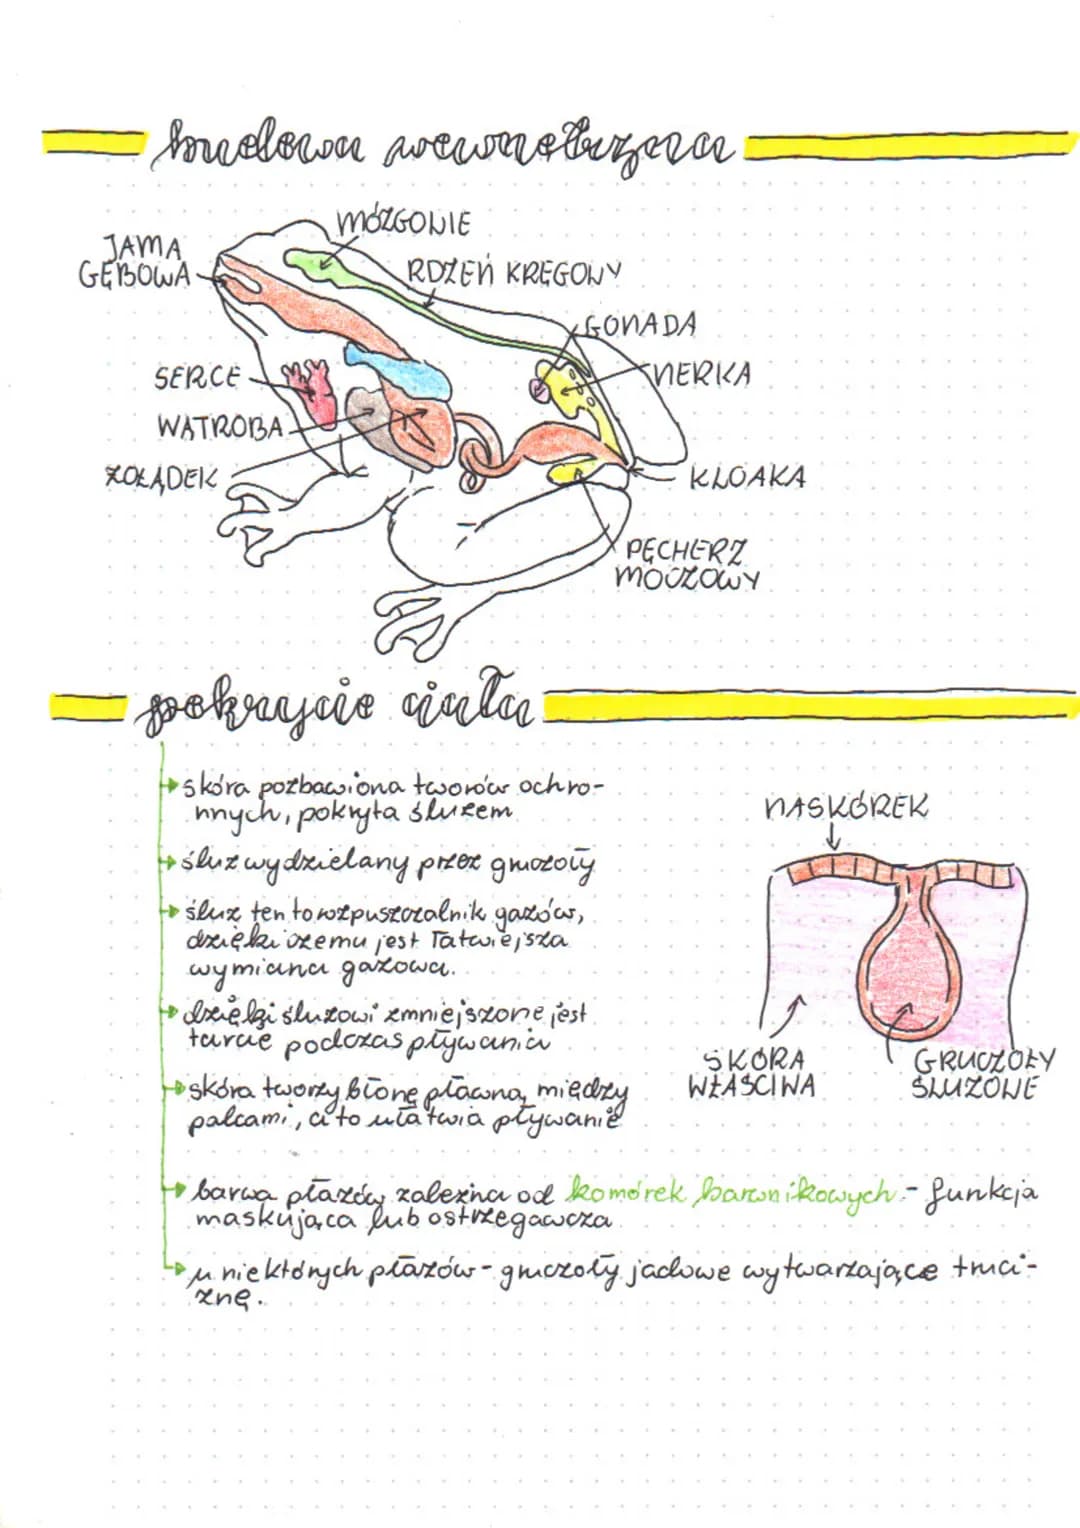 budowa wewnętrzna
MÓZGOWIE
JAMA
GĘBOWA
RDZEŃ KRĘGOWY
GONADA
SERCE
NERKA
WĄTROBA
ŻOŁĄDEK
KLOAKA
PĘCHERZ
MOCZOWY
pokrycie ciała
skóra pozbawiona tworów ochro-
nnych, pokryta śluzem
śluz wydzielany przez gruczoły
śluz ten to rozpuszczalnik gazów,
dzięki czemu jest łatwiejsza
wymiana gazowa.
dzięki śluzowi zmniejszone jest
tarcie podczas pływania
skóra tworzy błonę pławną między
palcami, a to ułatwia pływanie
NASKÓREK
SKÓRA
WŁAŚCIWA
GRUCZOŁY
ŚLUZOWE
barwa płazów zależna od komórek barwnikowych - funkcja
maskująca lub ostrzegawcza
u niektórych płazów - gruczoły jadowe wytwarzające truci-
znę.